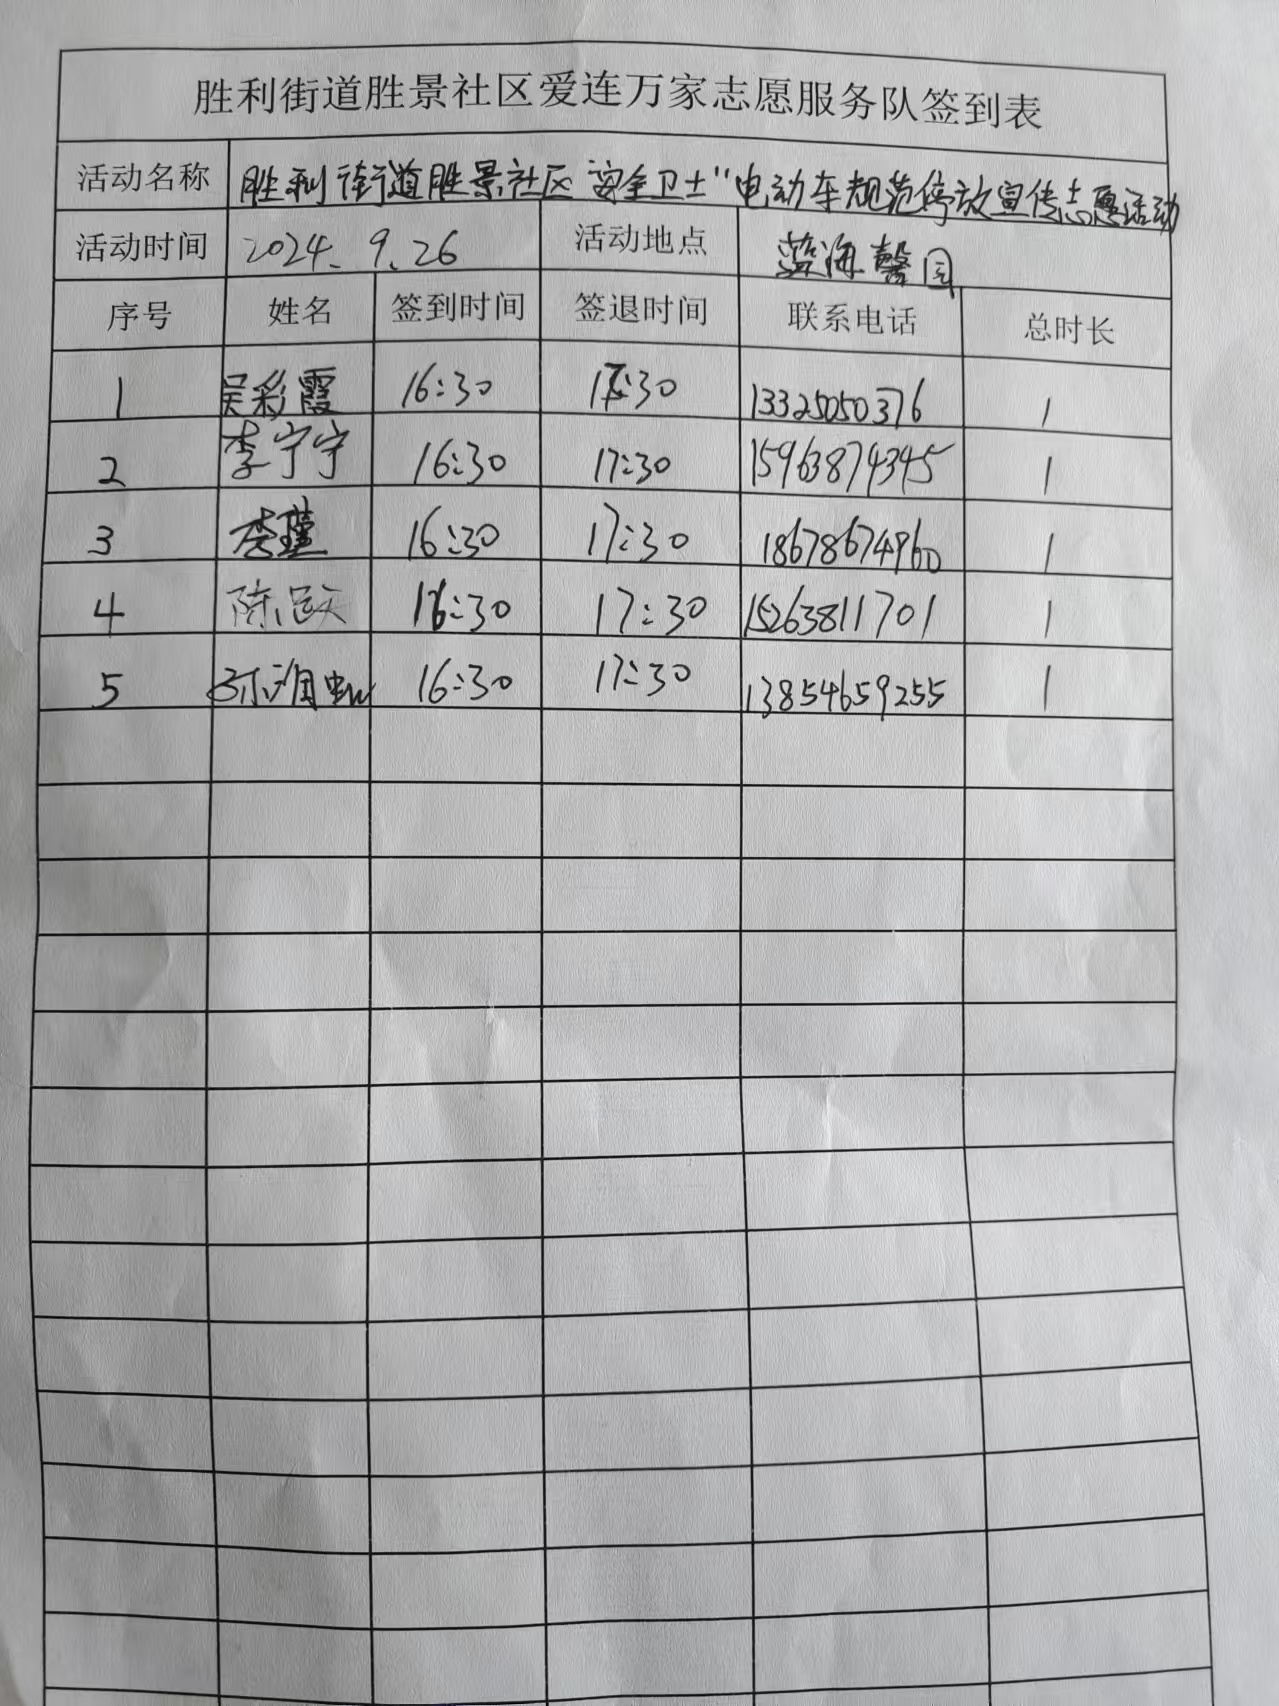 胜利街道胜景社区爱连万家志愿服务队签到表
活动名称 胜利街道胜景社区 安全卫士"电动车规范停放宣传志愿活动
活动时间 2024.9.26 活动地点 蓝海馨园
序号 姓名 签到时间 签退时间 联系电话 总时长
1 吴彩霞 16:30 17:30 13325050376 1
2 李宁宁 16:30 17:30 15963874345 1
3 李瑾 16:30 17:30 18678674960 1
4 陈跃 16:30 17:30 15263811701 1
5 16:30 17:30 13854659255 1